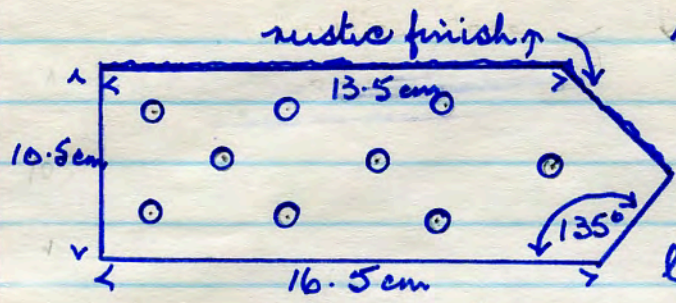 rustic finish
13.5 cm
10.5 cm
135°
16.5 cm